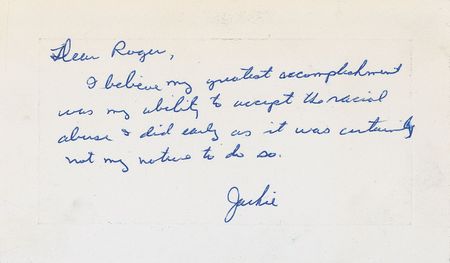 Dear Roger,
I believe my greatest accomplishment
was my ability to accept the racial
abuse I did early as it was certainly
not my nature to do so.
Jackie